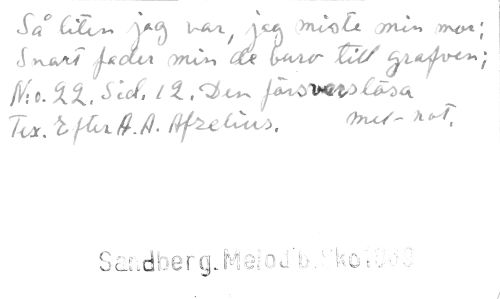 Så liten jag var, jag miste min mor;
Snart fader min de buro till grafven;
N:o. 22. Sid. 12. Den försvarslösa
Tex. Efter A. A. Afzelius. mel-not.
Sandberg. Melod b.